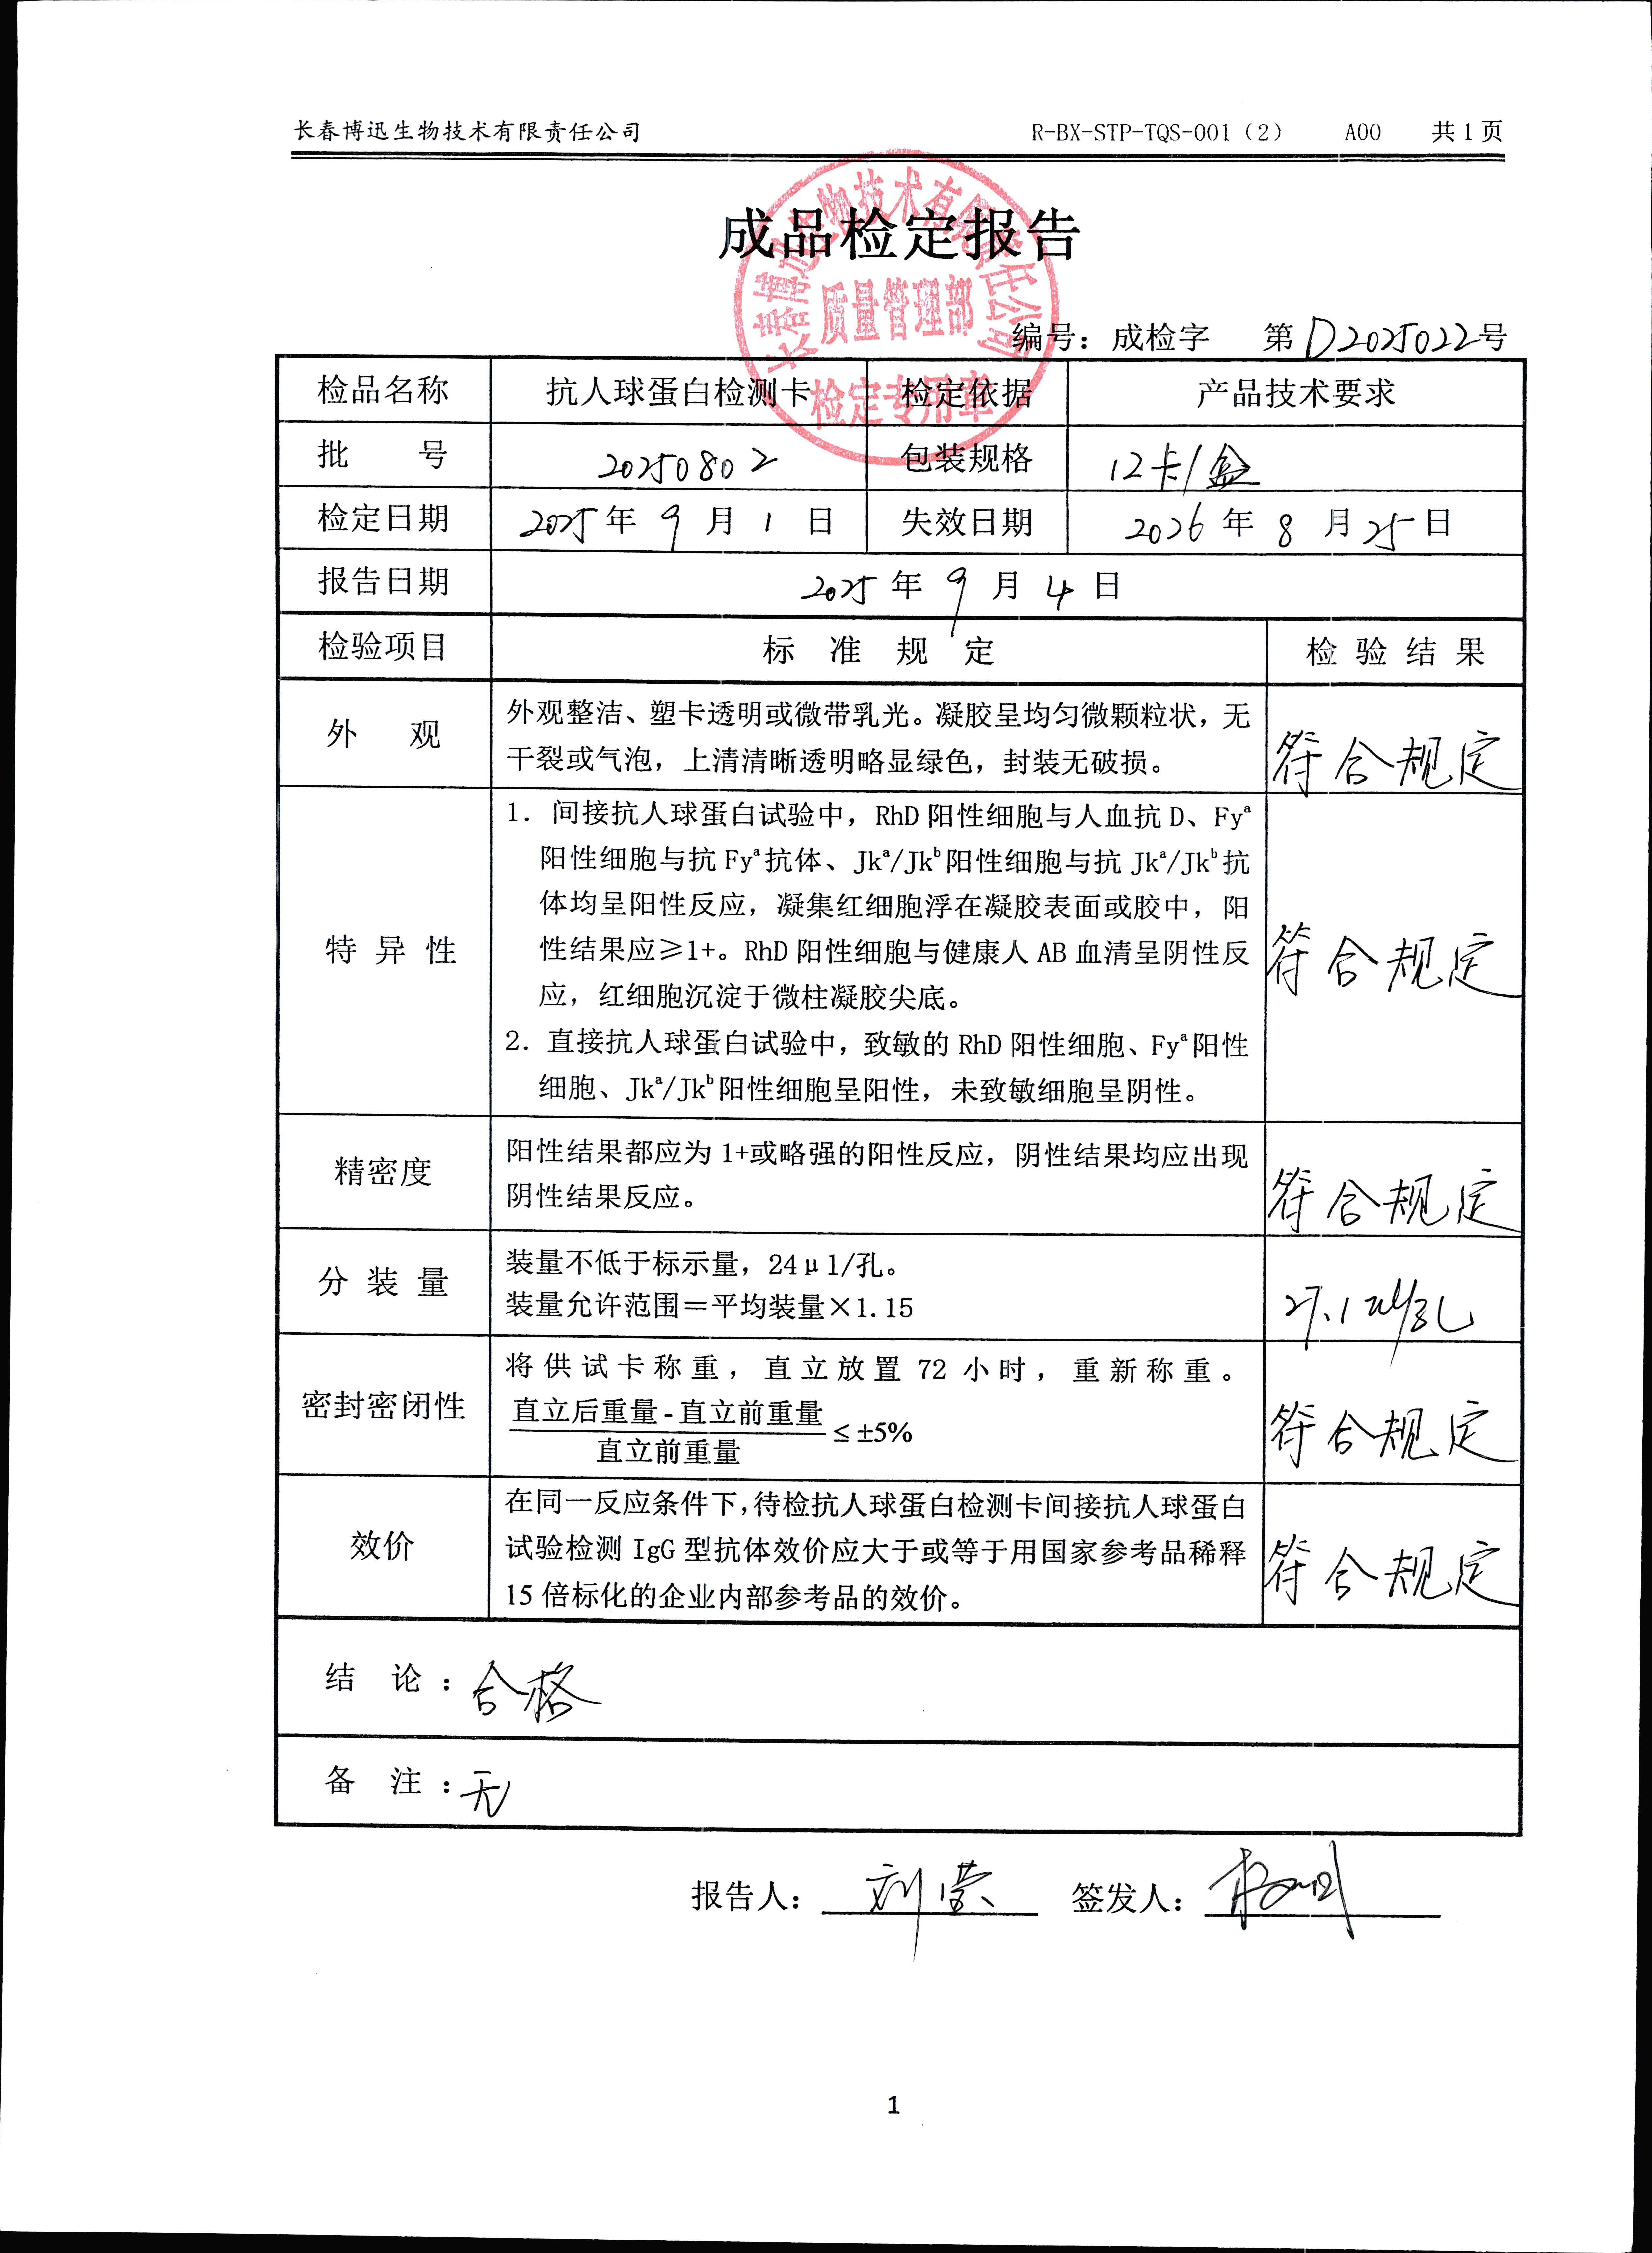 长春博迅生物技术有限责任公司 R-BX-STP-TQS-001（2） A00 共1页
成品检定报告
长春博迅生物技术有限责任公司
质量管理部
检定专用章
编号：成检字 第D2025022号
检品名称 抗人球蛋白检测卡 检定依据 产品技术要求
批 号 20250802 包装规格 12卡/盒
检定日期 2025年9月1日 失效日期 2026年8月25日
报告日期 2025年9月4日
检验项目 标 准 规 定 检 验 结 果
外 观 外观整洁、塑卡透明或微带乳光。凝胶呈均匀微颗粒状，无
干裂或气泡，上清清晰透明略显绿色，封装无破损。 符合规定
特 异 性 1. 间接抗人球蛋白试验中，RhD阳性细胞与人血抗D、Fyª
阳性细胞与抗Fyª抗体、Jkª/Jkᵇ阳性细胞与抗Jkª/Jkᵇ抗
体均呈阳性反应，凝集红细胞浮在凝胶表面或胶中，阳
性结果应≥1+。RhD阳性细胞与健康人AB血清呈阴性反
应，红细胞沉淀于微柱凝胶尖底。 符合规定
2. 直接抗人球蛋白试验中，致敏的RhD阳性细胞、Fyª阳性
细胞、Jkª/Jkᵇ阳性细胞呈阳性，未致敏细胞呈阴性。
精密度 阳性结果都应为1+或略强的阳性反应，阴性结果均应出现
阴性结果反应。 符合规定
分 装 量 装量不低于标示量，24μl/孔。
装量允许范围＝平均装量×1.15 27.1ul/孔
密封密闭性 将供试卡称重，直立放置72小时，重新称重。
直立后重量-直立前重量
直立前重量 ≤±5% 符合规定
效价 在同一反应条件下，待检抗人球蛋白检测卡间接抗人球蛋白
试验检测IgG型抗体效价应大于或等于用国家参考品稀释
15倍标化的企业内部参考品的效价。 符合规定
结 论：合格
备 注：无
报告人：刘莹 签发人：
1